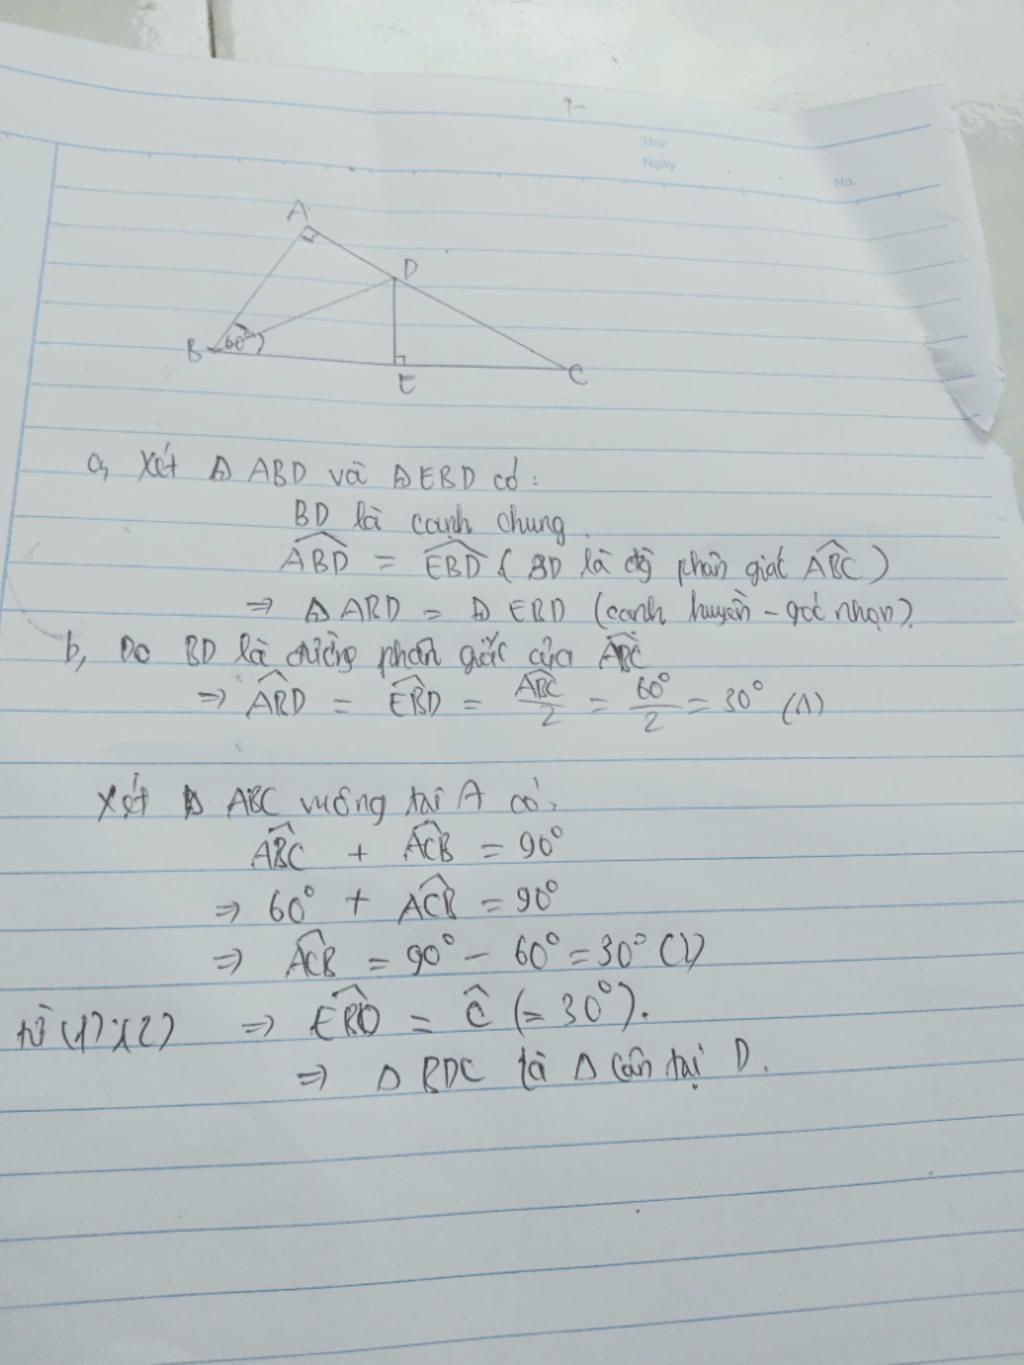 Thứ
Ngày
No.
A
D
B
60°
E
C
a, Xét Δ ABD và Δ EBD có:
BD là cạnh chung
ABD = EBD ( BD là phân giác ABC )
⇒ Δ ABD = Δ EBD (cạnh huyền - góc nhọn).
b, Do BD là đường phân giác của ABC
⇒ ABD = EBD = ABC/2 = 60°/2 = 30° (1)
Xét Δ ABC vuông tại A có:
ABC + ACB = 90°
⇒ 60° + ACB = 90°
⇒ ACB = 90° - 60° = 30° (2)
từ (1);(2) ⇒ EBD = C (= 30°).
⇒ Δ BDC là Δ cân tại D.